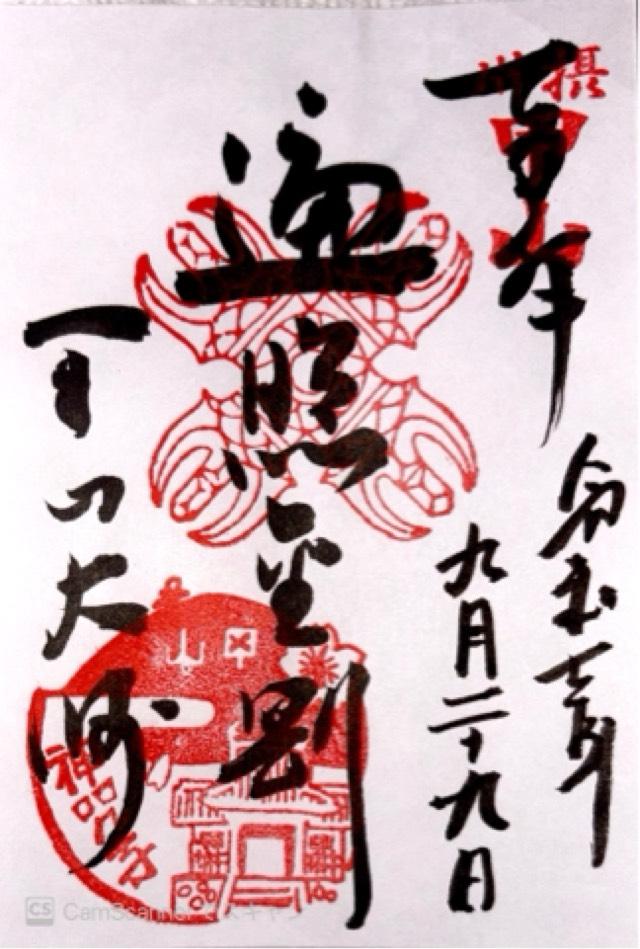 摂州
奉拝
令和七年
九月二十九日
遍照金剛
甲山大師
甲山
神呪寺
CS CamScanner でスキャン